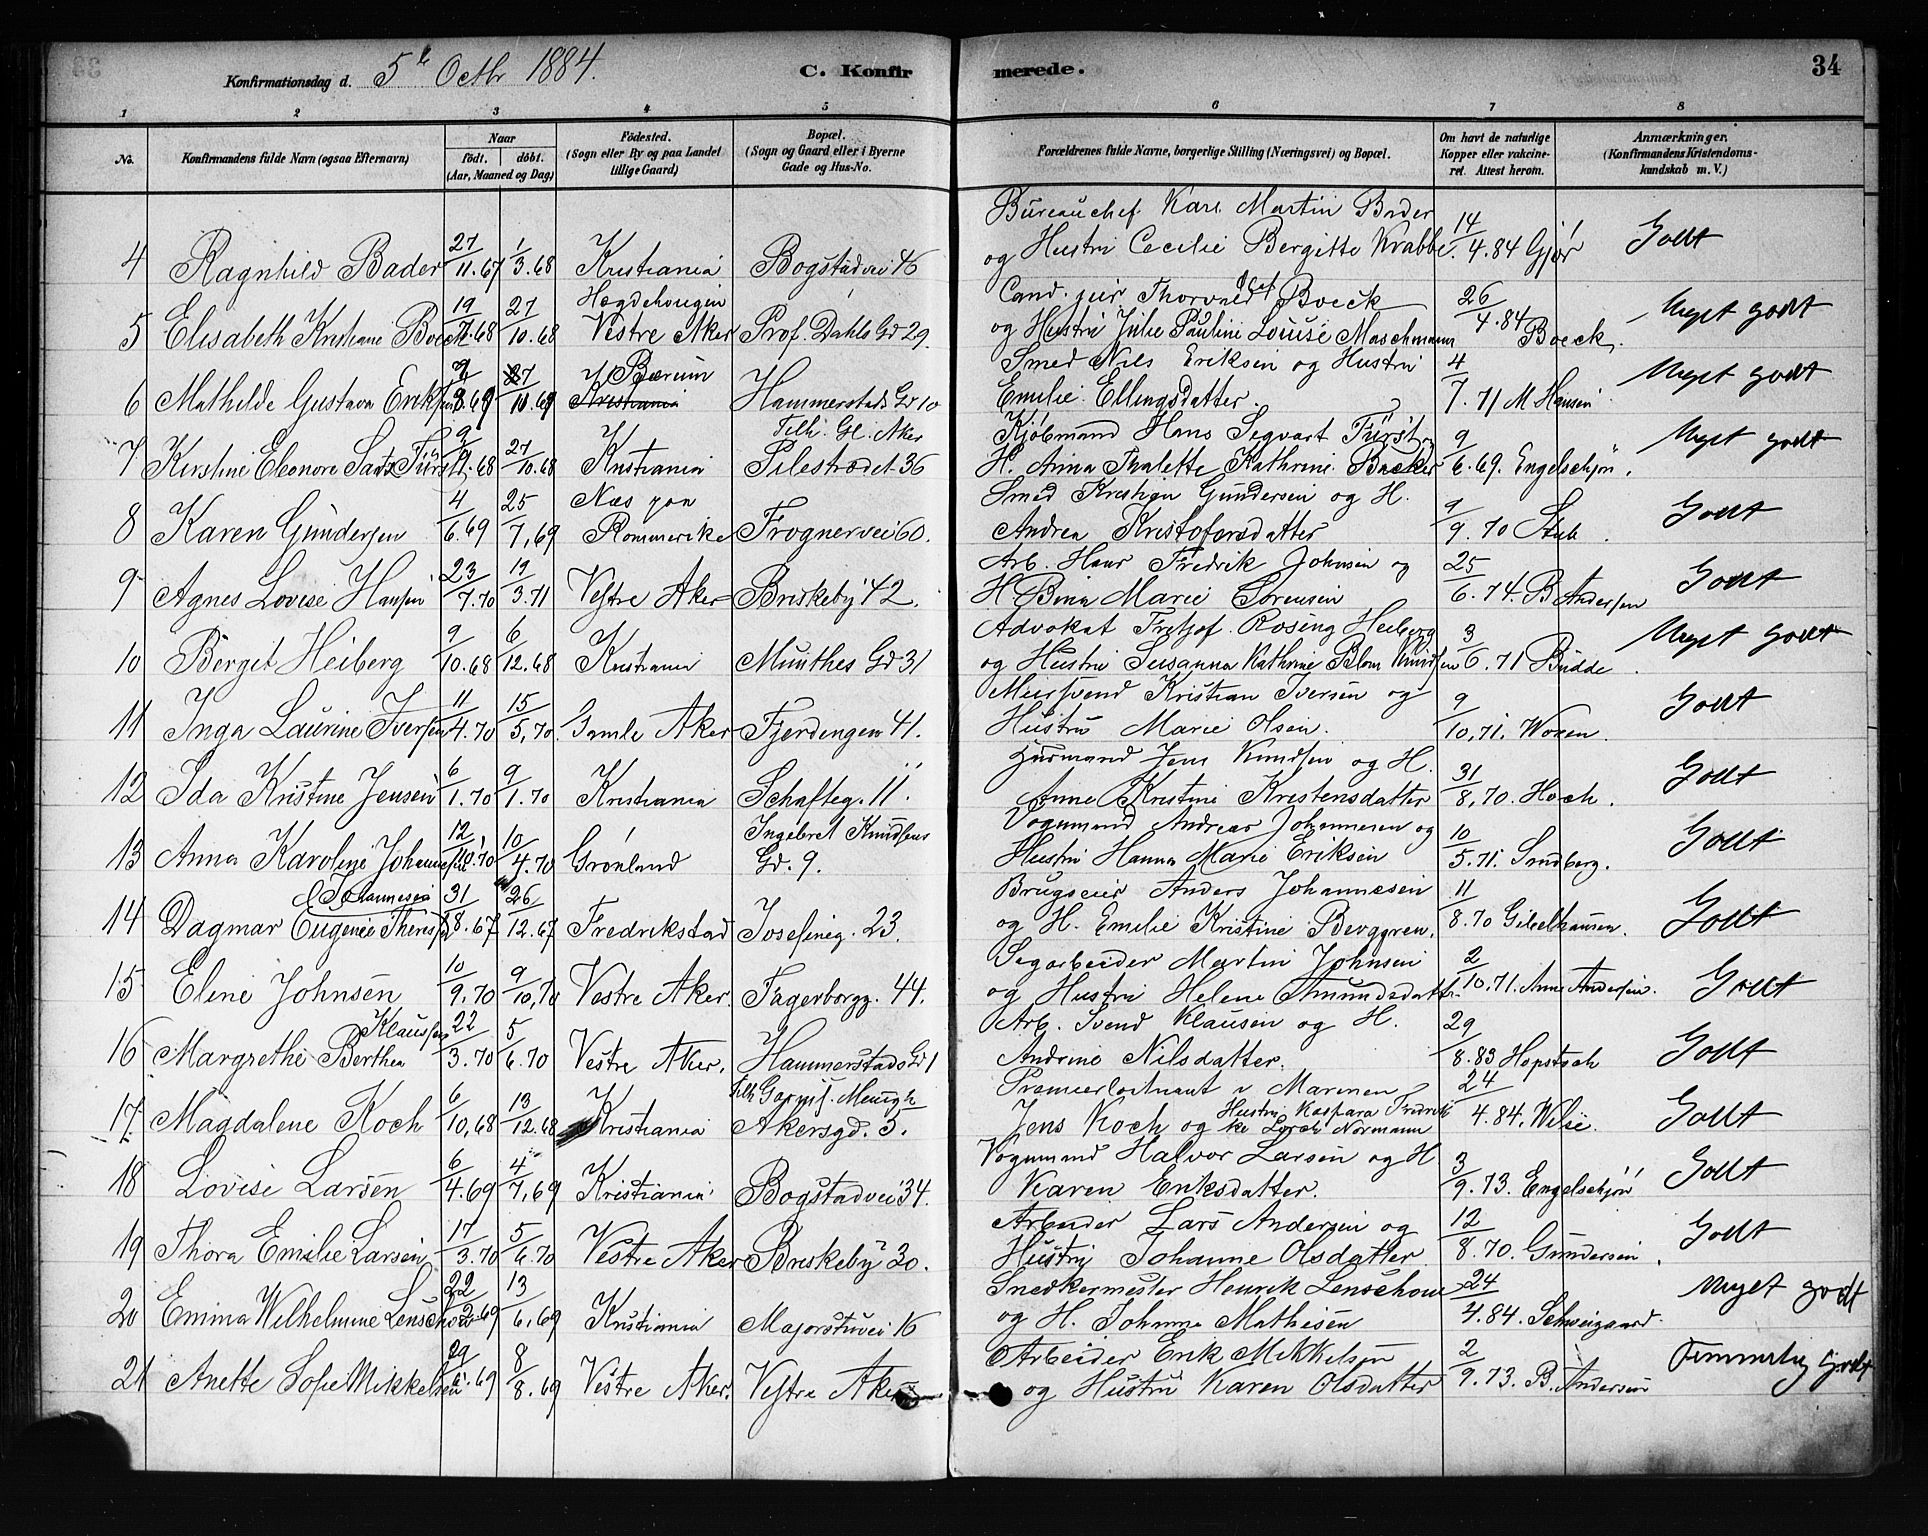 Konfirmationsdag d. 5te Octbr 1884.
C. Konfirmerede.
34
1 2 3 4 5 6 7 8
No.
Konfirmandens fulde Navn (ogsaa Efternavn)
Naar
födt. döbt.
(Aar, Maaned og Dag)
Födested.
(Sogn eller By og paa Landet
tillige Gaard)
Bopæl.
(Sogn og Gaard eller i Byerne
Gade og Hus-No.
Forældrenes fulde Navne, borgerlige Stilling (Næringsvei) og Bopæl.
Om havt de naturlige
Kopper eller vakcine-
ret. Attest herom.
Anmærkninger.
(Konfirmandens Kristendoms-
kundskab m. V.)
Bureauchef Karl Martin Bader
4 Ragnhild Bader 27/11.67 1/3.68 Kristiania Bogstadvei 46 og Hustru Cecilie Bergitte Krabbe 14/4.84 Gjør Godt
Hægdehougen Cand. jur. Thorvald Olaf Boeck
5 Elisabeth Kristiane Boeck 19/7.68 27/10.68 Vestre Aker Prof. Dahls Gd 29. og Hustru Julie Pauline Louise Maschmann 26/4.84 Boeck. Meget godt
V. Bærum Smed Nils Eriksen og Hustru
6 Mathilde Gustava Eriksen 8.69 10.69 Kristiania Hammerstads Gd 10 Emilie Ellingsdatter. 4/7.71 M Hansen Meget godt
Tilh. Gl. Aker Kjöbmand Hans Segvart Fürst og
7 Kirstine Eleonore Fürst 9/9.68 27/10.68 Kristiania Pilestrædet 36 H. Anna Thalette Kathrine Backer 9/6.69. Engelschjøn. Meget godt
Næs paa Smed Kristian Gundersen og H.
8 Karen Gundersen 4/6.69 25/7.69 Rommerike Frognervei 60. Andrea Kristofersdatter 9/9.70 Stub. Godt
Arb. Hans Fredrik Johnsen og
9 Agnes Lovise Hansen 23/7.70 19/3.71 Vestre Aker Briskeby 42. H. Bina Marie Sørensen 25/6.74. B Andersen Godt
Advokat Fritjof Rosing Heiberg
10 Berget Heiberg 9/10.68 6/12.68 Kristiania Munthes Gd 31 og Hustru Susanna Kathrine Blom Knudsen 3/6.71 Budde. Meget godt
Kristian Iversen og
11 Inga Laurine Iversen 11/4.70 15/5.70 Gamle Aker Fjerdingen 41. Hustru Marie Olsen. 9/10.71. Woxen. Godt
Husmand Jens Knudsen og H.
12 Ida Kristine Jensen 6/1.70 9/1.70 Kristiania Schafteg. 11. Anne Kristine Kristensdatter 31/8.70. Hoch. Godt
Ingebret Knudsens Vognmand Andreas Johannesen og
13 Anna Karoline Johannesen 12/.70 10/4.70 Grönland Gd. 9. Hustru Hanna Marie Eriksen 10/5.71. Sundberg. Godt
Johannesen Brugseier Anders Johannesen
14 Dagmar Eugenie Theresia 31/8.67 26/12.67 Fredrikstad Josefineg. 23. og H. Emilie Kristine Berggren. 11/8.70 Gibelhausen. Godt
Segarbeider Martin Johnsen
15 Eline Johnsen 10/9.70 9/10.70 Vestre Aker. Fagerborgg. 44. og Hustru Helene Amundsdatter 2/10.71. Anne Andersen. Godt
Klaussen Arb. Svend Klausen og H.
16 Margrethe Berthea 22/3.70 5/6.70 Vestre Aker. Hammerstads Gd 1 Andrine Nilsdatter. 29/8.83 Hopstock Godt
Tilh Garnis. Menigh Premierløitnant i Marinen
17 Magdalene Koch 6/10.68 13/12.68 Kristiania Akersgd. 5. Jens Koch og Hustru Kaspara Fredrikke Lorch Normann 24/4.84. Wilse. Godt
Vognmand Halvor Larsen og H
18 Lovise Larsen 6/4.69 4/7.69 Kristiania Bogstadvei 34. Karen Eriksdatter. 3/9.73. Engelschjøn Godt
Arbeider Lars Andersen og
19 Thora Emilie Larsen 17/3.70 5/6.70 Vestre Aker Briskeby 30. Hustru Johanne Olsdatter 12/8.70. Gundersen. Godt
Snedkermester Henrik Lenschow
20 Emma Wilhelmine Lenschow 22/2.69 13/6.69 Kristiania Majorstuvei 16 og H. Johanne Mathisen 24/4.84. Schweigaard. Meget godt
Arbeider Erik Mikkelsen
21 Anette Sofie Mikkelsen 29/6.69 8/8.69 Vestre Aker. Vestre Aker og Hustru Karen Olsdatter 2/9.73. B. Andersen Temmelig godt